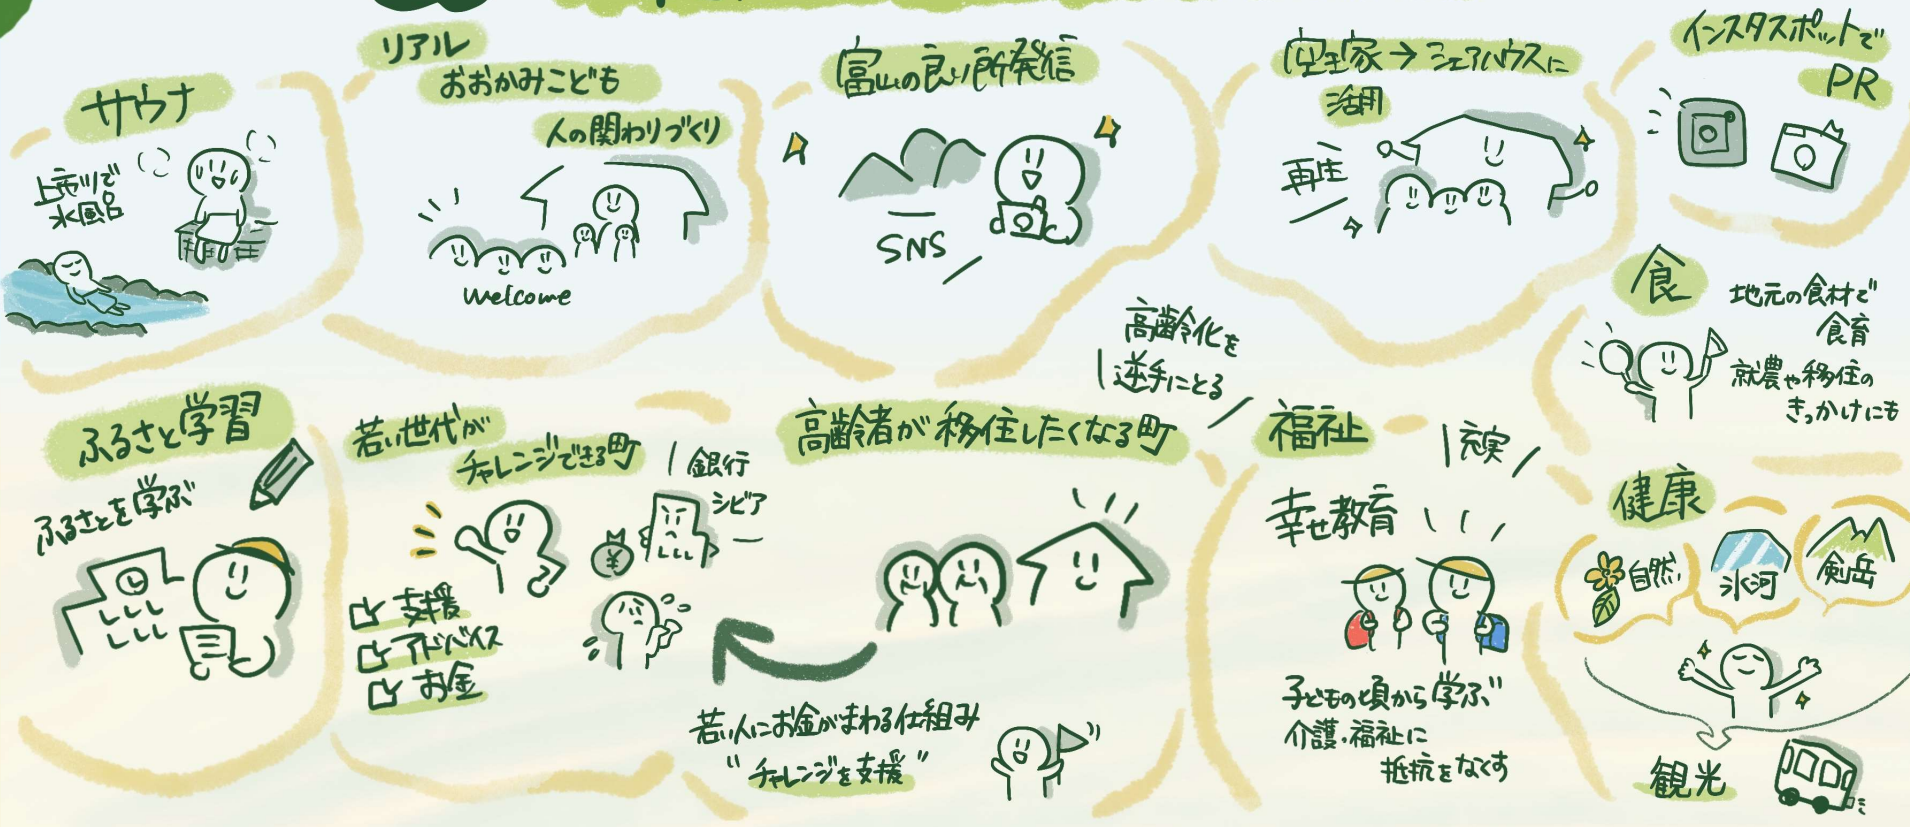 サウナ
上市川で
水風呂
リアル
おおかみこども
人の関わりづくり
welcome
富山の良い所発信
SNS
空き家→シェアハウスに
活用
再生
インスタスポットで
PR
食
地元の食材で
食育
就農や移住の
きっかけにも
ふるさと学習
ふるさとを学ぶ
若い世代が
チャレンジできる町
銀行
シビア
¥
支援
アドバイス
お金
高齢化を
逆手にとる
高齢者が移住したくなる町
若い人にお金がまわる仕組み
"チャレンジを支援"
福祉
充実
幸せ教育
子どもの頃から学ぶ
介護・福祉に
抵抗をなくす
健康
自然
氷河
剣岳
観光